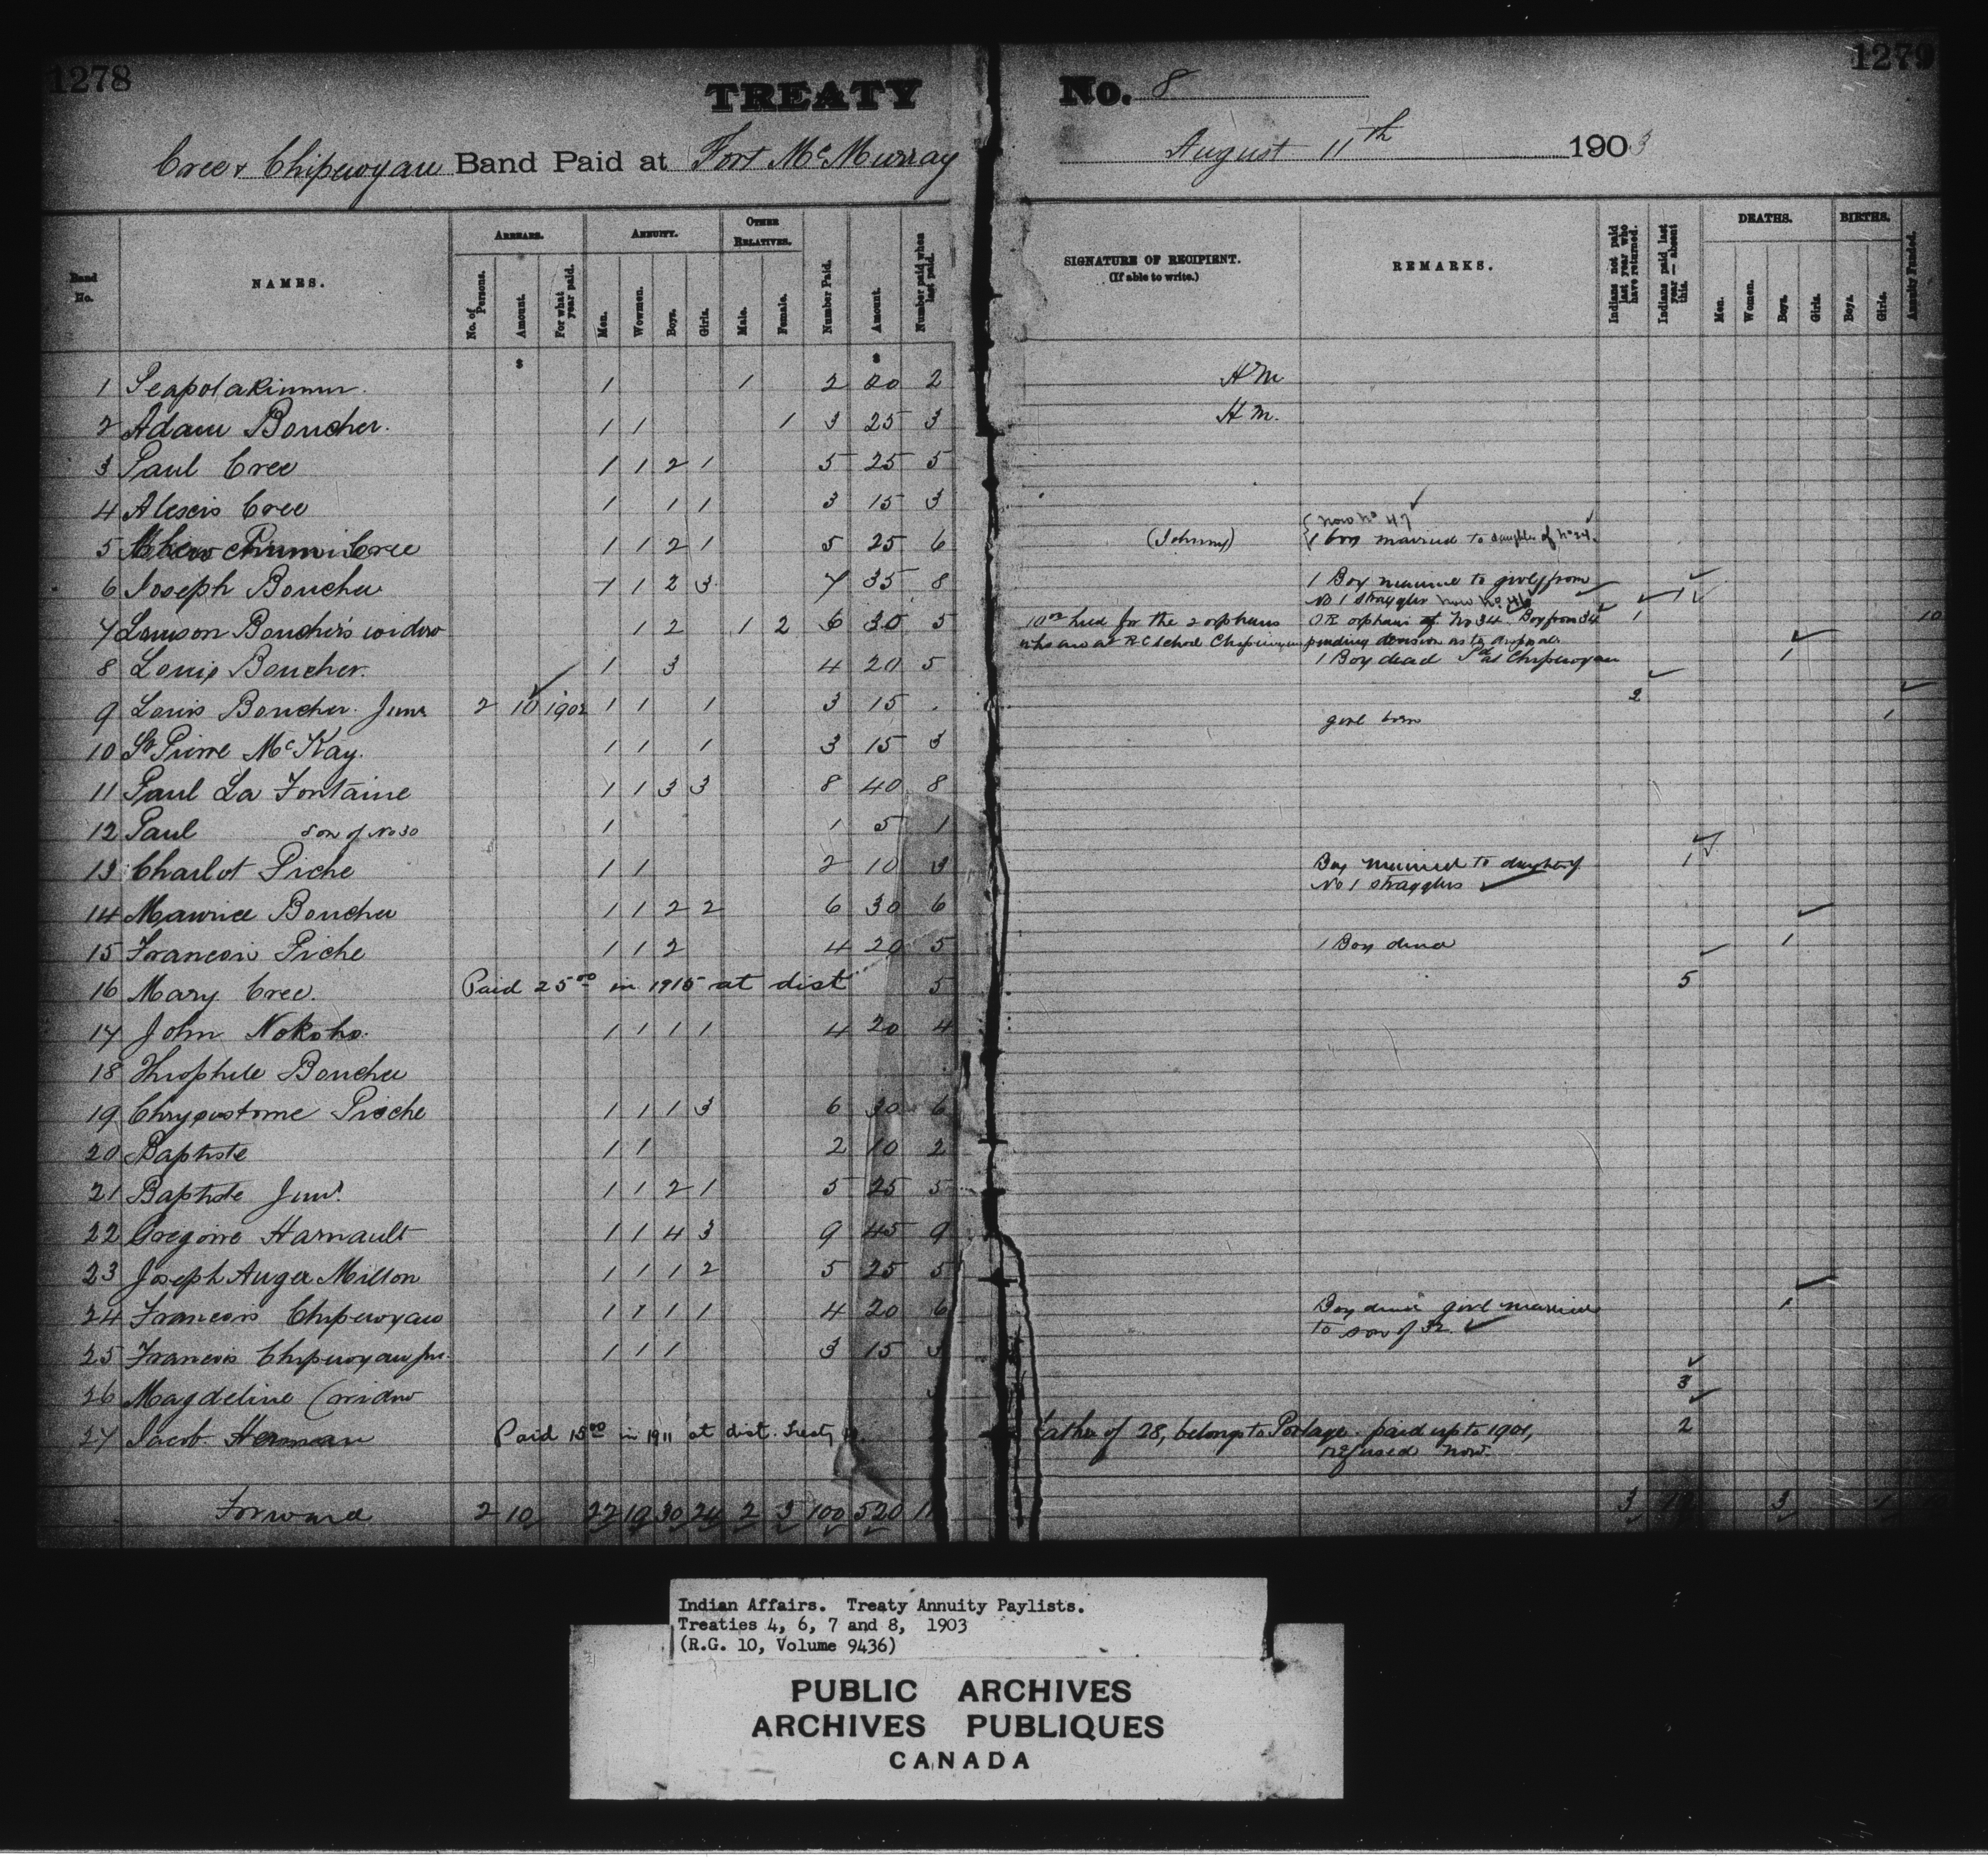 1278
1279
TREATY No. 8
Cree & Chipewyan Band Paid at Fort McMurray August 11th 1903
Band No.
NAMES.
ARREARS.
No. of Persons.
Amount.
For what year paid.
ANNUITY.
Men.
Women.
Boys.
Girls.
OTHER RELATIVES.
Male.
Female.
Number Paid.
Amount.
Number paid when last paid.
SIGNATURE OF RECIPIENT.
(If able to write.)
REMARKS.
Indians not paid last year who have returned.
Indians paid last year — absent this.
DEATHS.
Men.
Women.
Boys.
Girls.
BIRTHS.
Boys.
Girls.
Annuity Funded.
$ $
1 Seapotakinum 1 1 2 20 2 HM
2 Adam Boucher. 1 1 1 3 25 3 HM.
3 Paul Cree 1 1 2 1 5 25 5
4 Alexis Cree 1 1 1 3 15 3
5 Cree 1 1 2 1 5 25 6 (Johnny) { now No 47
1 boy married to daughter of No 24.
6 Joseph Boucher 1 1 2 3 7 35 8 1 Boy married to girl from 1
No 1 stragglers now No. 46
7 Lawson Boucher's widow 1 2 1 2 6 30 5 10.00 held for the 2 orphans OR orphans of No 34. Boy from 34 1 10
who are at RC School Chipewyan pending decision as to disposal
8 Louis Boucher. 1 3 4 20 5 1 Boy dead Pd at Chipewyan 1
9 Louis Boucher. Junr 2 10 1902 1 1 1 3 15 . girl born 2 1
10 St Pierre McKay. 1 1 1 3 15 3
11 Paul La Fontaine 1 1 3 3 8 40 8
12 Paul son of No 30 1 1 5 1
13 Charlot Piche 1 1 2 10 3 Boy married to daughter of 1
No 1 stragglers
14 Maurice Boucher 1 1 2 2 6 30 6
15 Francois Piche 1 1 2 4 20 5 1 Boy died 1
16 Mary Cree. Paid 25.00 in 1915 at dist 5 5
17 John Nokoho. 1 1 1 1 4 20 4
18 Theophile Boucher
19 Chrysostome Piche 1 1 1 3 6 30 6
20 Baptiste 1 1 2 10 2
21 Baptiste Junr. 1 1 2 1 5 25 5
22 Gregoire Harnault 1 1 4 3 9 45 9
23 Joseph Auger Millon 1 1 1 2 5 25 5
24 Francois Chipewyan 1 1 1 1 4 20 6 Boy died girl married 1
to son of 32
25 Francois Chipewyan Jnr. 1 1 1 3 15 3
26 Magdeline (widow 3
27 Jacob Herman Paid 15.00 in 1911 at dist. Treaty father of 28, belongs to Portage. paid up to 1901, 2
refused now.
Forward 2 10 22 19 30 24 2 3 100 520 3 3 1
Indian Affairs. Treaty Annuity Paylists.
Treaties 4, 6, 7 and 8, 1903
(R.G. 10, Volume 9436)
PUBLIC ARCHIVES
ARCHIVES PUBLIQUES
CANADA